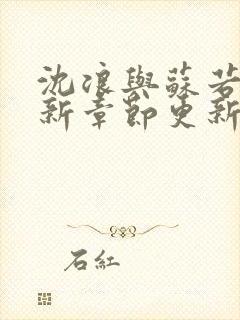 沈浪與蘇若
新章節更新
石紅